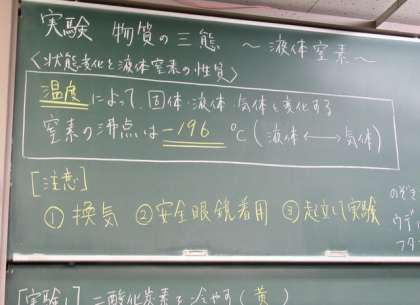 実験 物質の三態 ～液体窒素～
〈状態変化と液体窒素の性質〉
温度によって、固体・液体・気体と変化する
窒素の沸点は-196℃(液体⟷気体)
[注意]
① 換気 ② 安全眼鏡着用 ③ 起立して実験
のぞき
[実験1] 二酸化炭素を冷やす(黄)